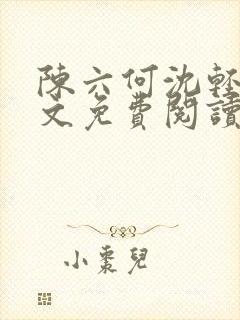 陳六何沈輕
文免費閱讀
小棗兒